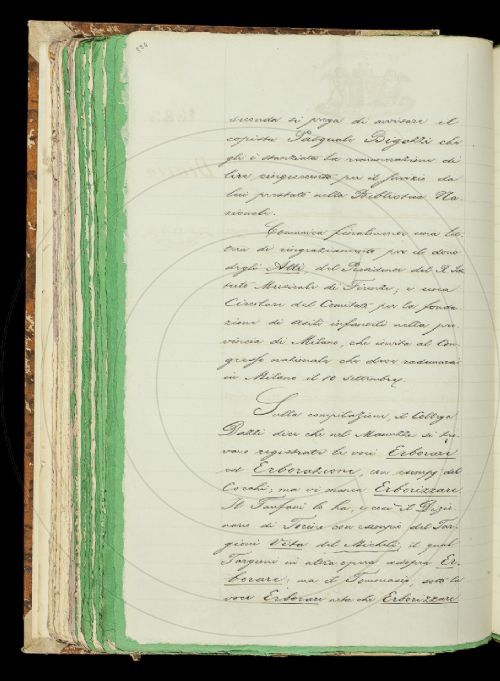 seconda si prega di avvisare il
copista Pasquale Bigazzi che
gli è stanziata la remunerazione di
lire cinquecento per il servizio da
lui prestato nella Biblioteca Na-
zionale.
Comunica finalmente una let-
tera di ringraziamento per il dono
degli Atti del Presidente del R. Isti-
tuto Musicale di Firenze; e una
Circolare del Comitato per la fonda-
zione di asili infantili nella pro-
vincia di Milano, che invita al Con-
gresso nazionale che deve radunarsi
in Milano il 10 settembre.
Sulla compilazione, il Collega
Dazzi dice che nel Manuzzi si tro-
vano registrate le voci Erborare
ed Erborazione, con esempj del
Cocchi; ma vi manca Erborizzare.
Il Fanfani lo ha, e così il Dizio-
nario di Torino con esempio del Tar-
gioni Vita del Micheli, il qual
Targioni in altra opera adopra Er-
borare; ma il Tommaseo, sotto la
voce Erborare nota che Erborizzare